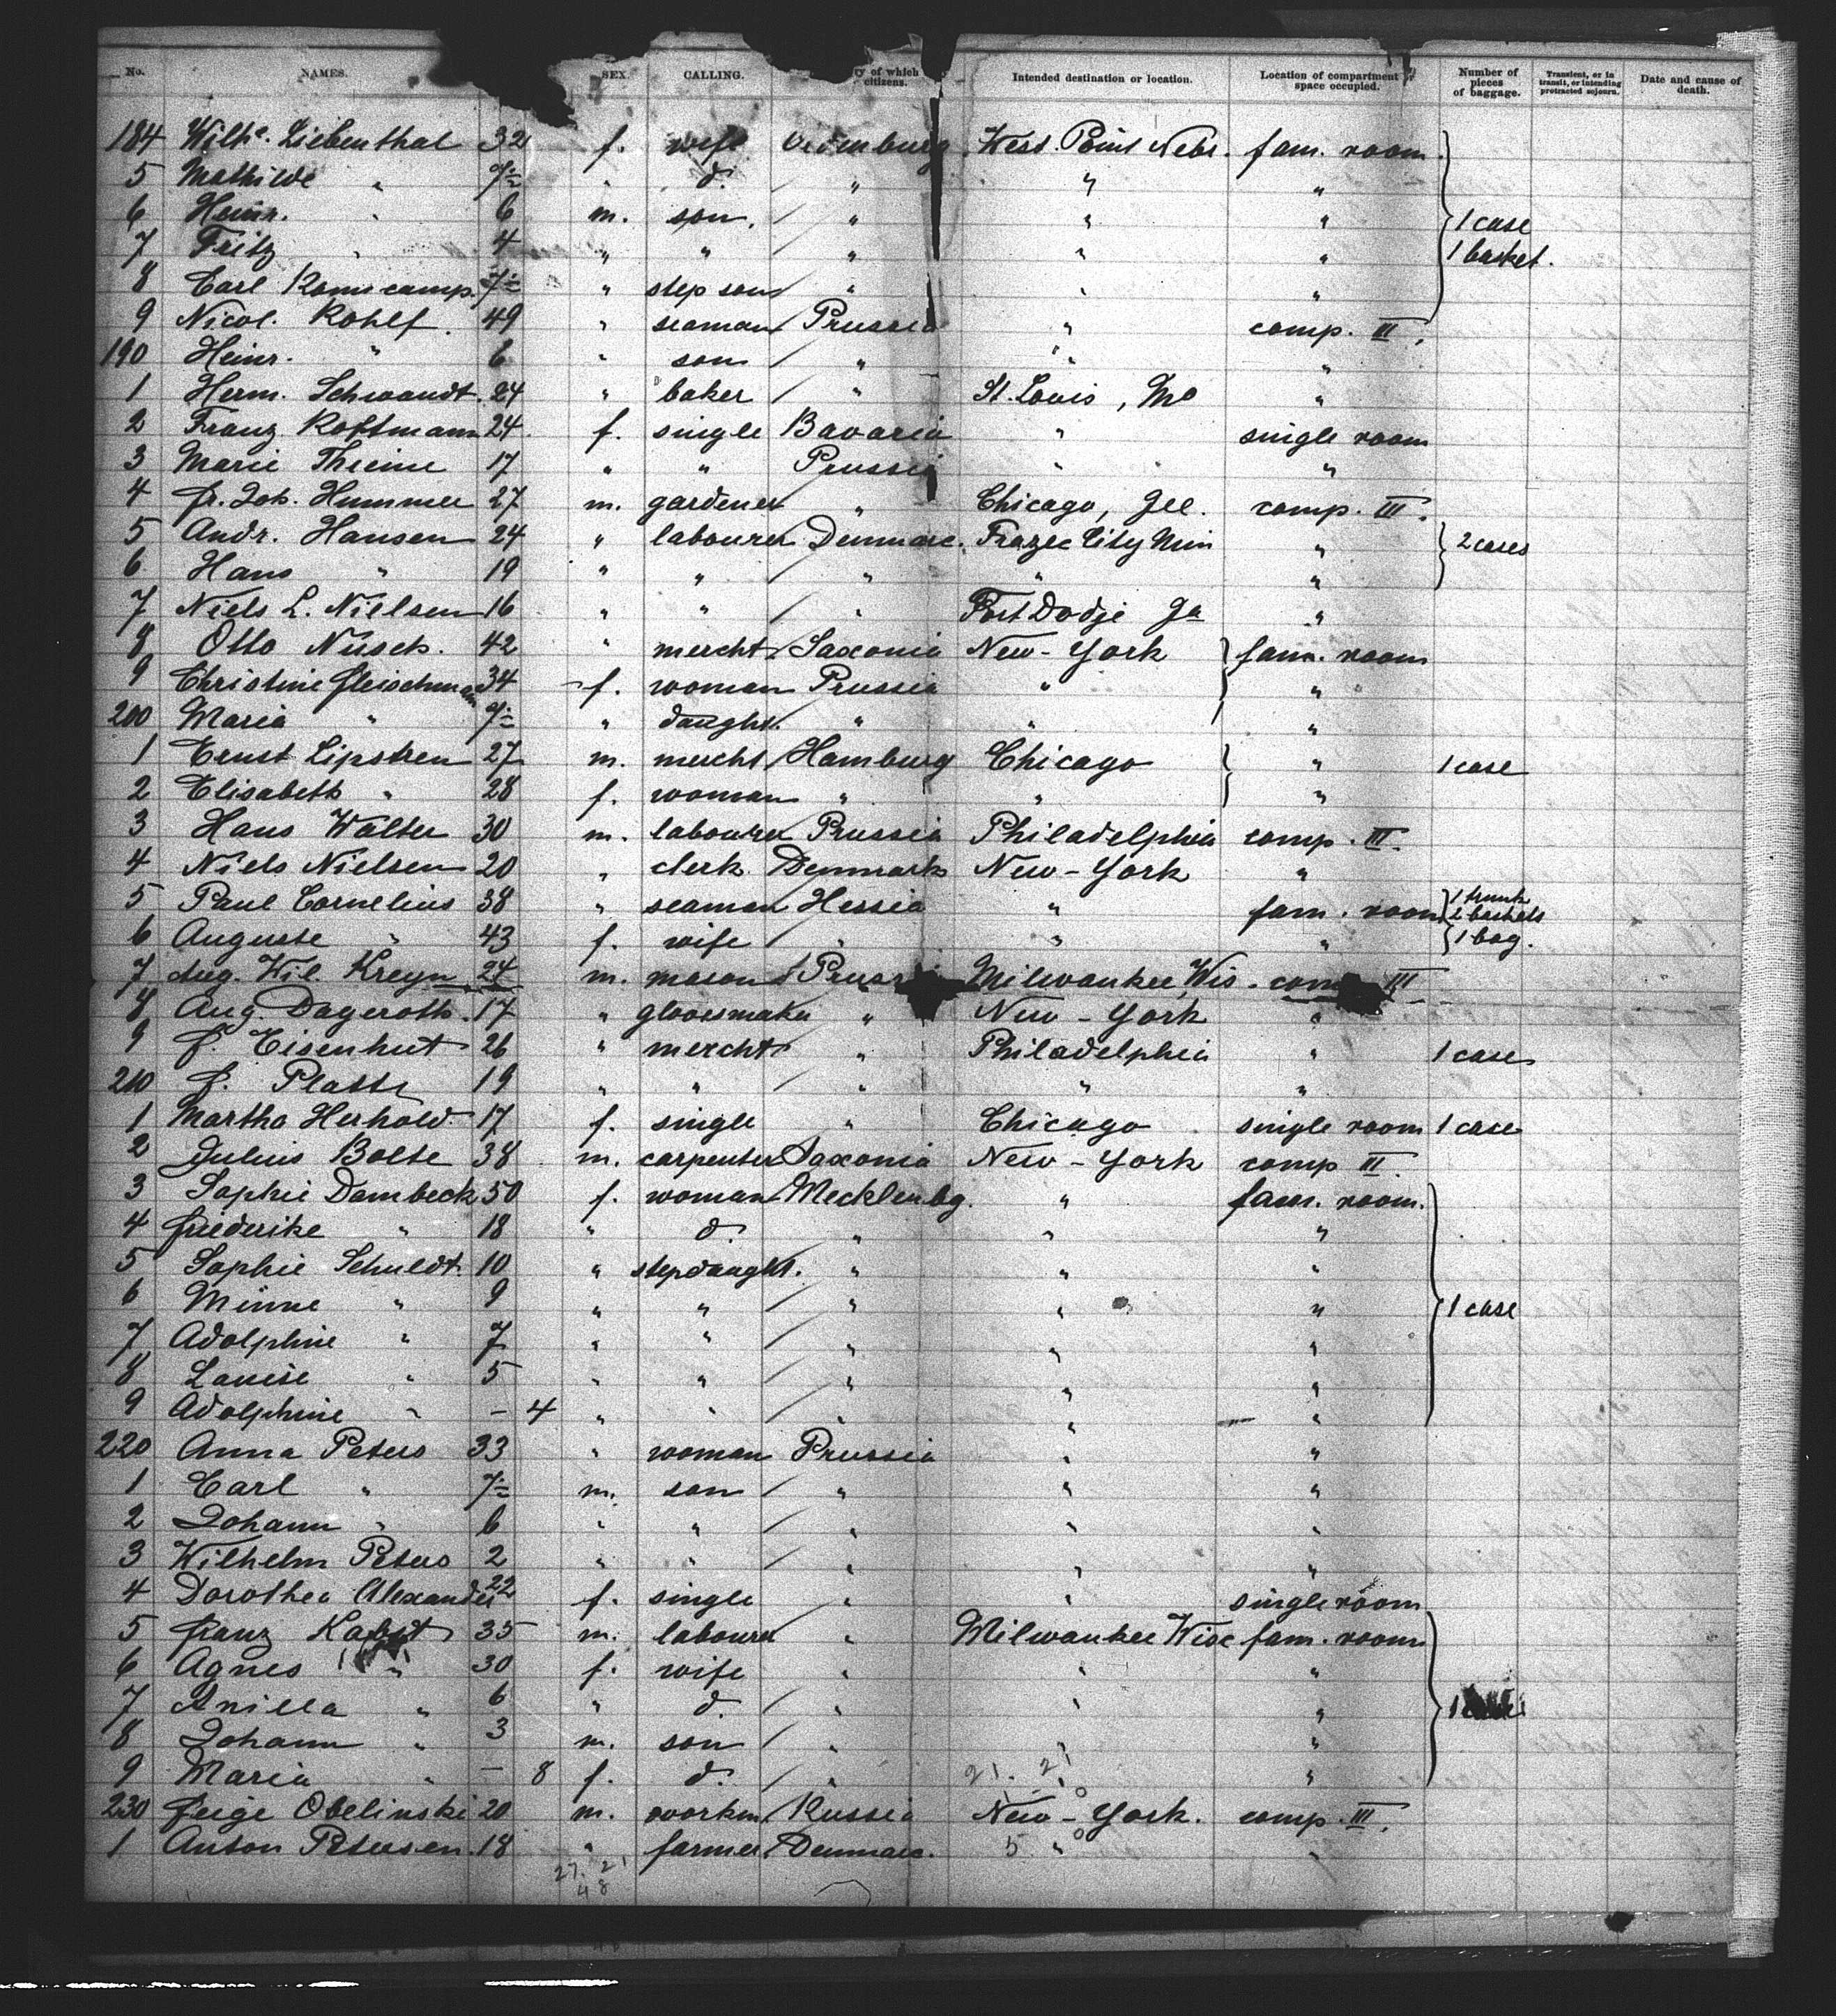 No. NAMES. SEX. CALLING. y of which citizens. Intended destination or location. Location of compartment or space occupied. Number of pieces of baggage. Transient, or in transit, or intending protracted sojourn. Date and cause of death.
184 Wilhe. Liebenthal 32 f. wife West Point Nebr. fam. room
5 Mathilde " " d. " " "
6 Heinr. " 6 m. son. " " " 1 case
7 Fritz " 4 " " " " " 1 basket.
8 Carl " step son " " "
9 Nicol. Rohlf. 49 " seaman Prussia " comp. III.
190 Heinr. " 6 " son " " "
1 Herm. Schwandt. 24 " baker " St. Louis, Mo "
2 Franz 24. f. single Bavaria " single room
3 Marie Thieme 17 " " Prussia " "
4 Fr. Joh. Hummer 27 m. gardener " Chicago, Ill. comp. III.
5 Andr. Hansen 24 " labourer Denmarc. Frazee City Min " 2 cases
6 Hans " 19 " " " " "
7 Niels L. Nielsen 16 " " " Fort Dodje Ia "
8 Otto 42 " mercht. Saxonia New-York fam. room
9 Christine Fleischmann 34 f. woman Prussia " "
200 Maria " " daught. " " "
1 Ernst Lipstren 27 m. mercht Hamburg Chicago " 1 case
2 Elisabeth " 28 f. woman " " "
3 Hans Walter 30 m. labourer Prussia Philadelphia comp. III.
4 Niels Nielsen 20 " clerk Denmark New-York "
5 Paul Cornelius 38 " seaman Hessia " fam. room 1 trunk 2 baskets
6 Auguste " 43 f. wife " " " 1 bag.
7 Aug. Wil. Kreyn 24 m. mason Pruss Milwaukee Wis. com III
8 Aug. Dageroth. 17 " " New-York "
9 F. Eisenhut 26 " mercht " Philadelphia " 1 case
210 F. Platte 19 " " " " "
1 Martha Herhold. 17 f. single " Chicago single room 1 case
2 Julius Bolte 38 m. carpenter Saxonia New-York comp III.
3 Sophie Dambeck 50 f. woman Mecklenbg. " fam. room.
4 Friederike " 18 " d. " " "
5 Sophie Schuldt. 10 " stepdaught. " " "
6 Minne " 9 " " " " " 1 case
7 Adolphine " 7 " " " " "
8 Louise " 5 " " " " "
9 Adolphine " - 4 " " " " "
220 Anna Peters 33 " woman Prussia " "
1 Carl " m. son " " "
2 Johann " 6 " " " " "
3 Wilhelm Peters 2 " " " " "
4 Dorothea Alexander 22 f. single " " single room
5 Franz 35 m. labourer " Milwaukee Wisc fam. room
6 Agnes " 30 f. wife " " "
7 " 6 " d. " " " 1
8 Johann " 3 m. son " " "
9 Maria " - 8 f. d. " 21. 21 "
230 Feige Obelinski 20 m. workm. Russia New-York. comp. III.
1 Anton Petersen. 18 " farmer Denmarc. 5 " "
27. 21
48